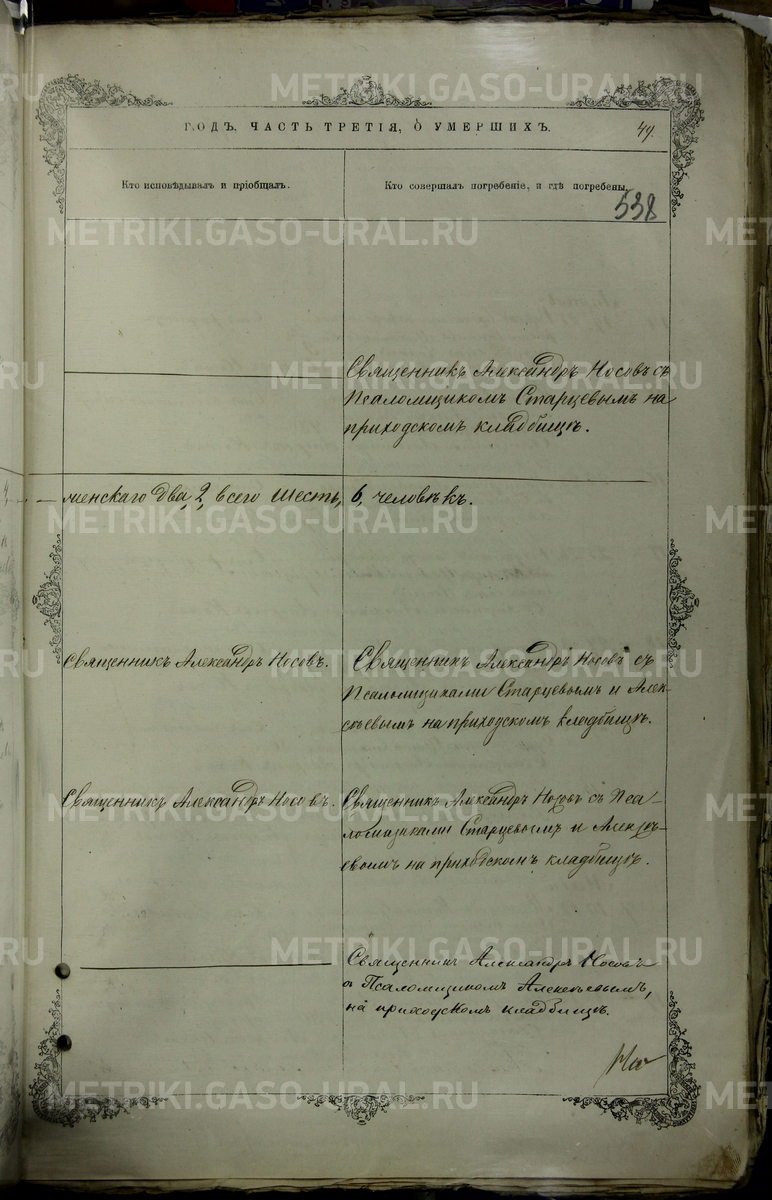 METRIKI.GASO-URAL.RU
ГОДЪ, ЧАСТЬ ТРЕТІЯ, О УМЕРШИХЪ.
49.
Кто исповѣдывалъ и пріобщалъ.
Кто совершалъ погребеніе, и гдѣ погребены.
538
Священникъ Александръ Носовъ съ
Псаломщикомъ Старцевымъ на
приходскомъ кладбищѣ.
менскаго два 2, всего шесть, 6, человѣкъ.
Священникъ Александръ Носовъ.
Священникъ Александръ Носовъ съ
Псаломщиками Старцевымъ и Алек-
сѣевымъ на приходскомъ кладбищѣ.
Священникъ Александръ Носовъ.
Священникъ Александръ Носовъ съ Пса-
ломщиками Старцевымъ и Алексѣ-
евымъ на приходскомъ кладбищѣ.
Священникъ Александръ Носовъ
съ Псаломщикомъ Алексѣевымъ,
на приходскомъ кладбищѣ.